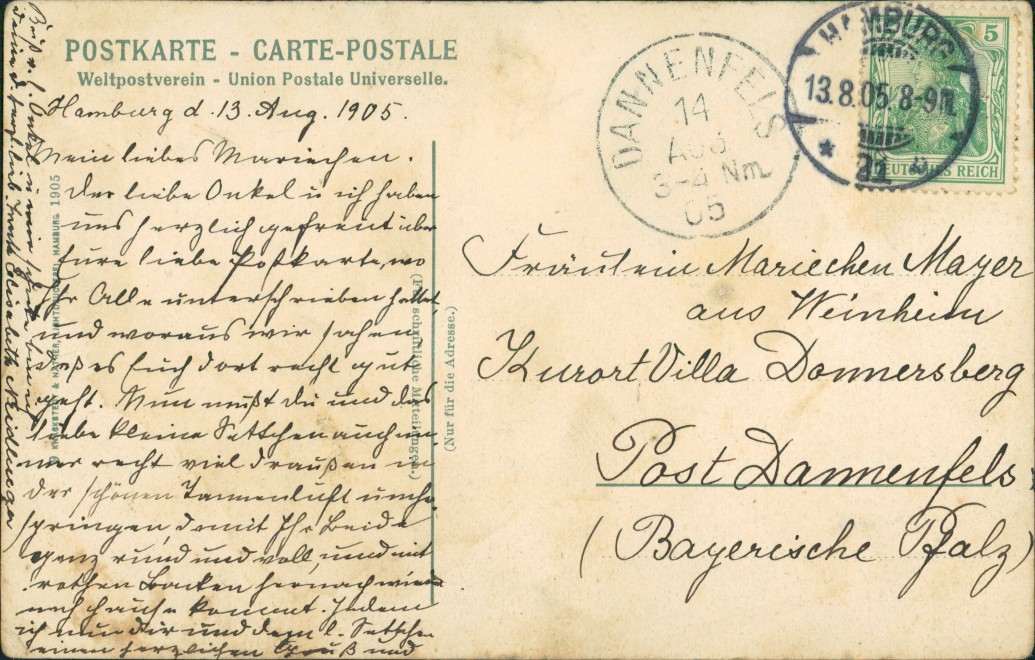 POSTKARTE - CARTE-POSTALE
Weltpostverein - Union Postale Universelle.
Hamburg d. 13. Aug. 1905.
Mein liebes Mariechen.
Der liebe Onkel u ich haben
uns herzlich gefreut über
Eure liebe Postkarte, wo
Ihr Alle unterschrieben hattet
und woraus wir sahen
daß es Euch dort recht gut
geht. Nun mußt du und das
liebe kleine Settchen auch im
mer recht viel draußen in
der schönen Tannenluft umher
springen, damit Ihr Beide
ganz rund und voll, und mit
rothen Backen hernach wieder
nach Hause kommt. Indem
ich nun Dir und dem l. Settchen
einen herzlichen Gruß und
Elisabeth
(Für schriftliche Mitteilungen.)
(Nur für die Adresse.)
HAMBURG 1905
DANNENFELS
14
AUG
3-4 Nm.
05
HAMBURG
13.8.05.8-9N.
* 21
5
DEUTSCHES REICH
Fräulein Mariechen Mayer
aus Weinheim
Kurort Villa Donnersberg
Post Dannenfels
(Bayerische Pfalz)